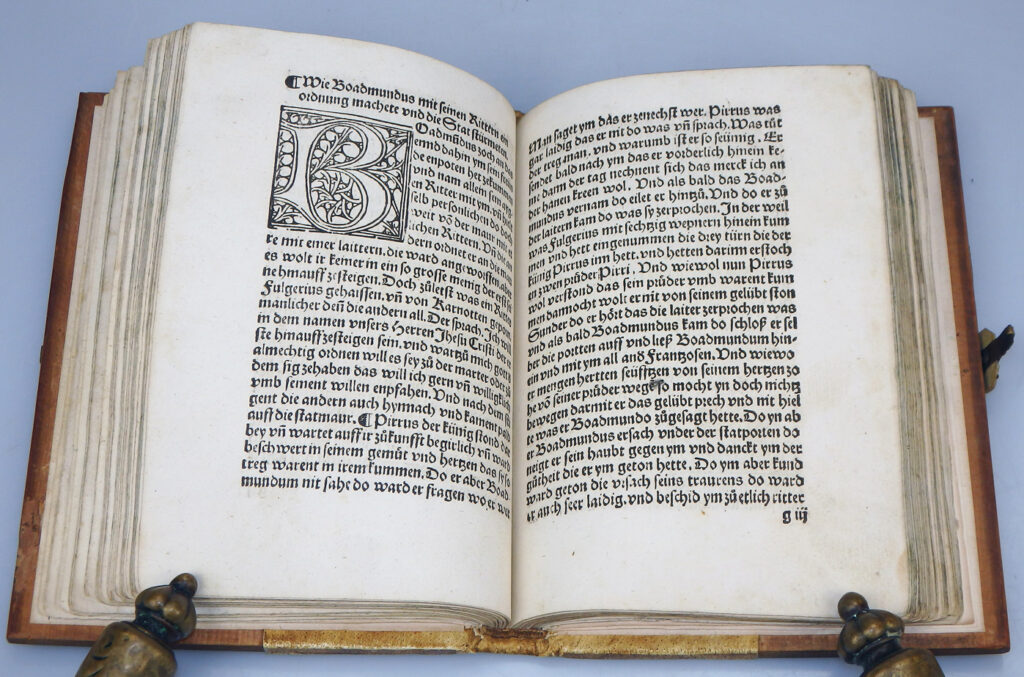 ¶ Wie Boadmundus mit seinen Rittern ein
ordnung machete vnd die Stat stürmeten.
BOadmūdus zoch an das
ennd dahm ym sein sün
de enpoten het zekummen
vnd nam allein sein
en Ritter mit ym. vn̄
selb persönlichen do
weit võ der maur mit
lichen Rittern. Vnd
dern ordnet er an die mau
re mit einer laittern. die ward angeworffen. aber
es wolt ir keiner in ein so grosse menig der erst
hinauff zesteigen. Doch zůletst was ein Ritter
Fulgerius gehaissen. vn̄ von Karnotten geporn
manlicher den̄ die andern all. Der sprach. Ich will
in dem namen vnsers Herren Jhesu Cristi der er
ste hinauffzesteigen sein. vnd wartzů mich gott
almechtig ordnen will es sey zů der marter oder zů
dem sig zehaben das will ich gern vn̄ willigklich
vmb seinent willen enpfahen. Vnd nach dem
gent die andern auch hynnach vnd kament pald
auff die statmaur. ¶ Pirrus der künig stond do
bey vn̄ wartet auff ir zůkunfft begirlich vn̄ ward
beschwert in seinem gemüt vnd hertzen das sy so
treg warent in irem kummen. Do er aber Boad
mundum nit sahe do ward er fragen wo er wer
Man saget ym das er zenechst wer. Pirrus was
gar laidig das er nit do was vn̄ sprach. Was tůt
der treg man. vnd warumb ist er so seümig. Er
sendet bald nach ym das er vorderlich hinein ke-
me dann der tag nechnent sich das merck ich an
der hanen kreen wol. Vnd als bald das Boad-
mundus vernam do eilet er hintzů. Vnd do er zů
der laitern kam do was sy zerprochen. In der weil
was Fulgerius mit sechtzig wepnern hinein kum
men vnd hett eingenummen die drey türn die der
künig Pirrus inn hett. vnd hetten darinn erstoch
en zwen průder Pirri. Vnd wiewol nun Pirrus
wol verstond das sein průder vmb warent kum
men darnocht wolt er nit von seinem gelübt ston
Sunder do er hört das die laiter zerprochen was
vnd als bald Boadmundus kam do schloß er sel
ber die portten auff vnd ließ Boadmundum hin-
ein vnd mit ym all and Frantzosen. Vnd wiewo
er mengen hertten seüfftzen von seinem hertzen zo
he võ seiner průder wegen so mocht yn doch nichtz
bewegen darmit er das gelübt prech vnd nit hiel
te was er Boadmundo zůgesagt hette. Do yn ab
er Boadmundus ersach vnder der statporten do
neigt er sein haubt gegen ym vnd danckt ym der
gůtheit die er ym geton hette. Do ym aber kund
ward geton die vrsach seins traurens do ward
er auch seer laidig. vnd beschid ym zů etlich ritter
g iij